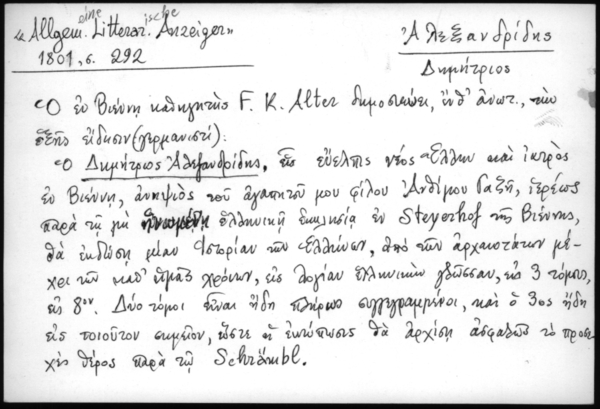 «Allgemeine Litterarische Anzeiger»
1801, σ. 292
Ἀλεξανδρίδης
Δημήτριος
Ὁ ἐν Βιέννῃ καθηγητὴς F. K. Alter δημοσιεύει, ἔνθ' ἀνωτ., τὴν
ἑξῆς εἴδησιν (γερμανιστί):
Ὁ Δημήτριος Ἀλεξανδρίδης, εὔελπις νέος Ἕλλην καὶ ἰατρὸς
ἐν Βιέννῃ, ἀνηψιὸς τοῦ ἀγαπητοῦ μου φίλου Ἀνθίμου Γαζῆ, ἱερέως
παρὰ τῇ μὴ ἡνωμένῃ ἑλληνικῇ ἐκκλησίᾳ ἐν Steyerhof τῆς Βιέννης,
θὰ ἐκδώσῃ μίαν Ἱστορίαν τῶν Ἑλλήνων, ἀπὸ τῶν ἀρχαιοτάτων μέ-
χρι τῶν καθ' ἡμᾶς χρόνων, εἰς λογίαν ἑλληνικὴν γλῶσσαν, εἰς 3 τόμους,
εἰς 8ον. Δύο τόμοι εἶναι ἤδη πλήρως συγγεγραμμένοι, καὶ ὁ 3ος ἤδη
εἰς τοιοῦτον σημεῖον, ὥστε ἡ ἐκτύπωσις θὰ ἀρχίσῃ ἀσφαλῶς τὸ προσε-
χὲς θέρος παρὰ τῷ Schrämbl.